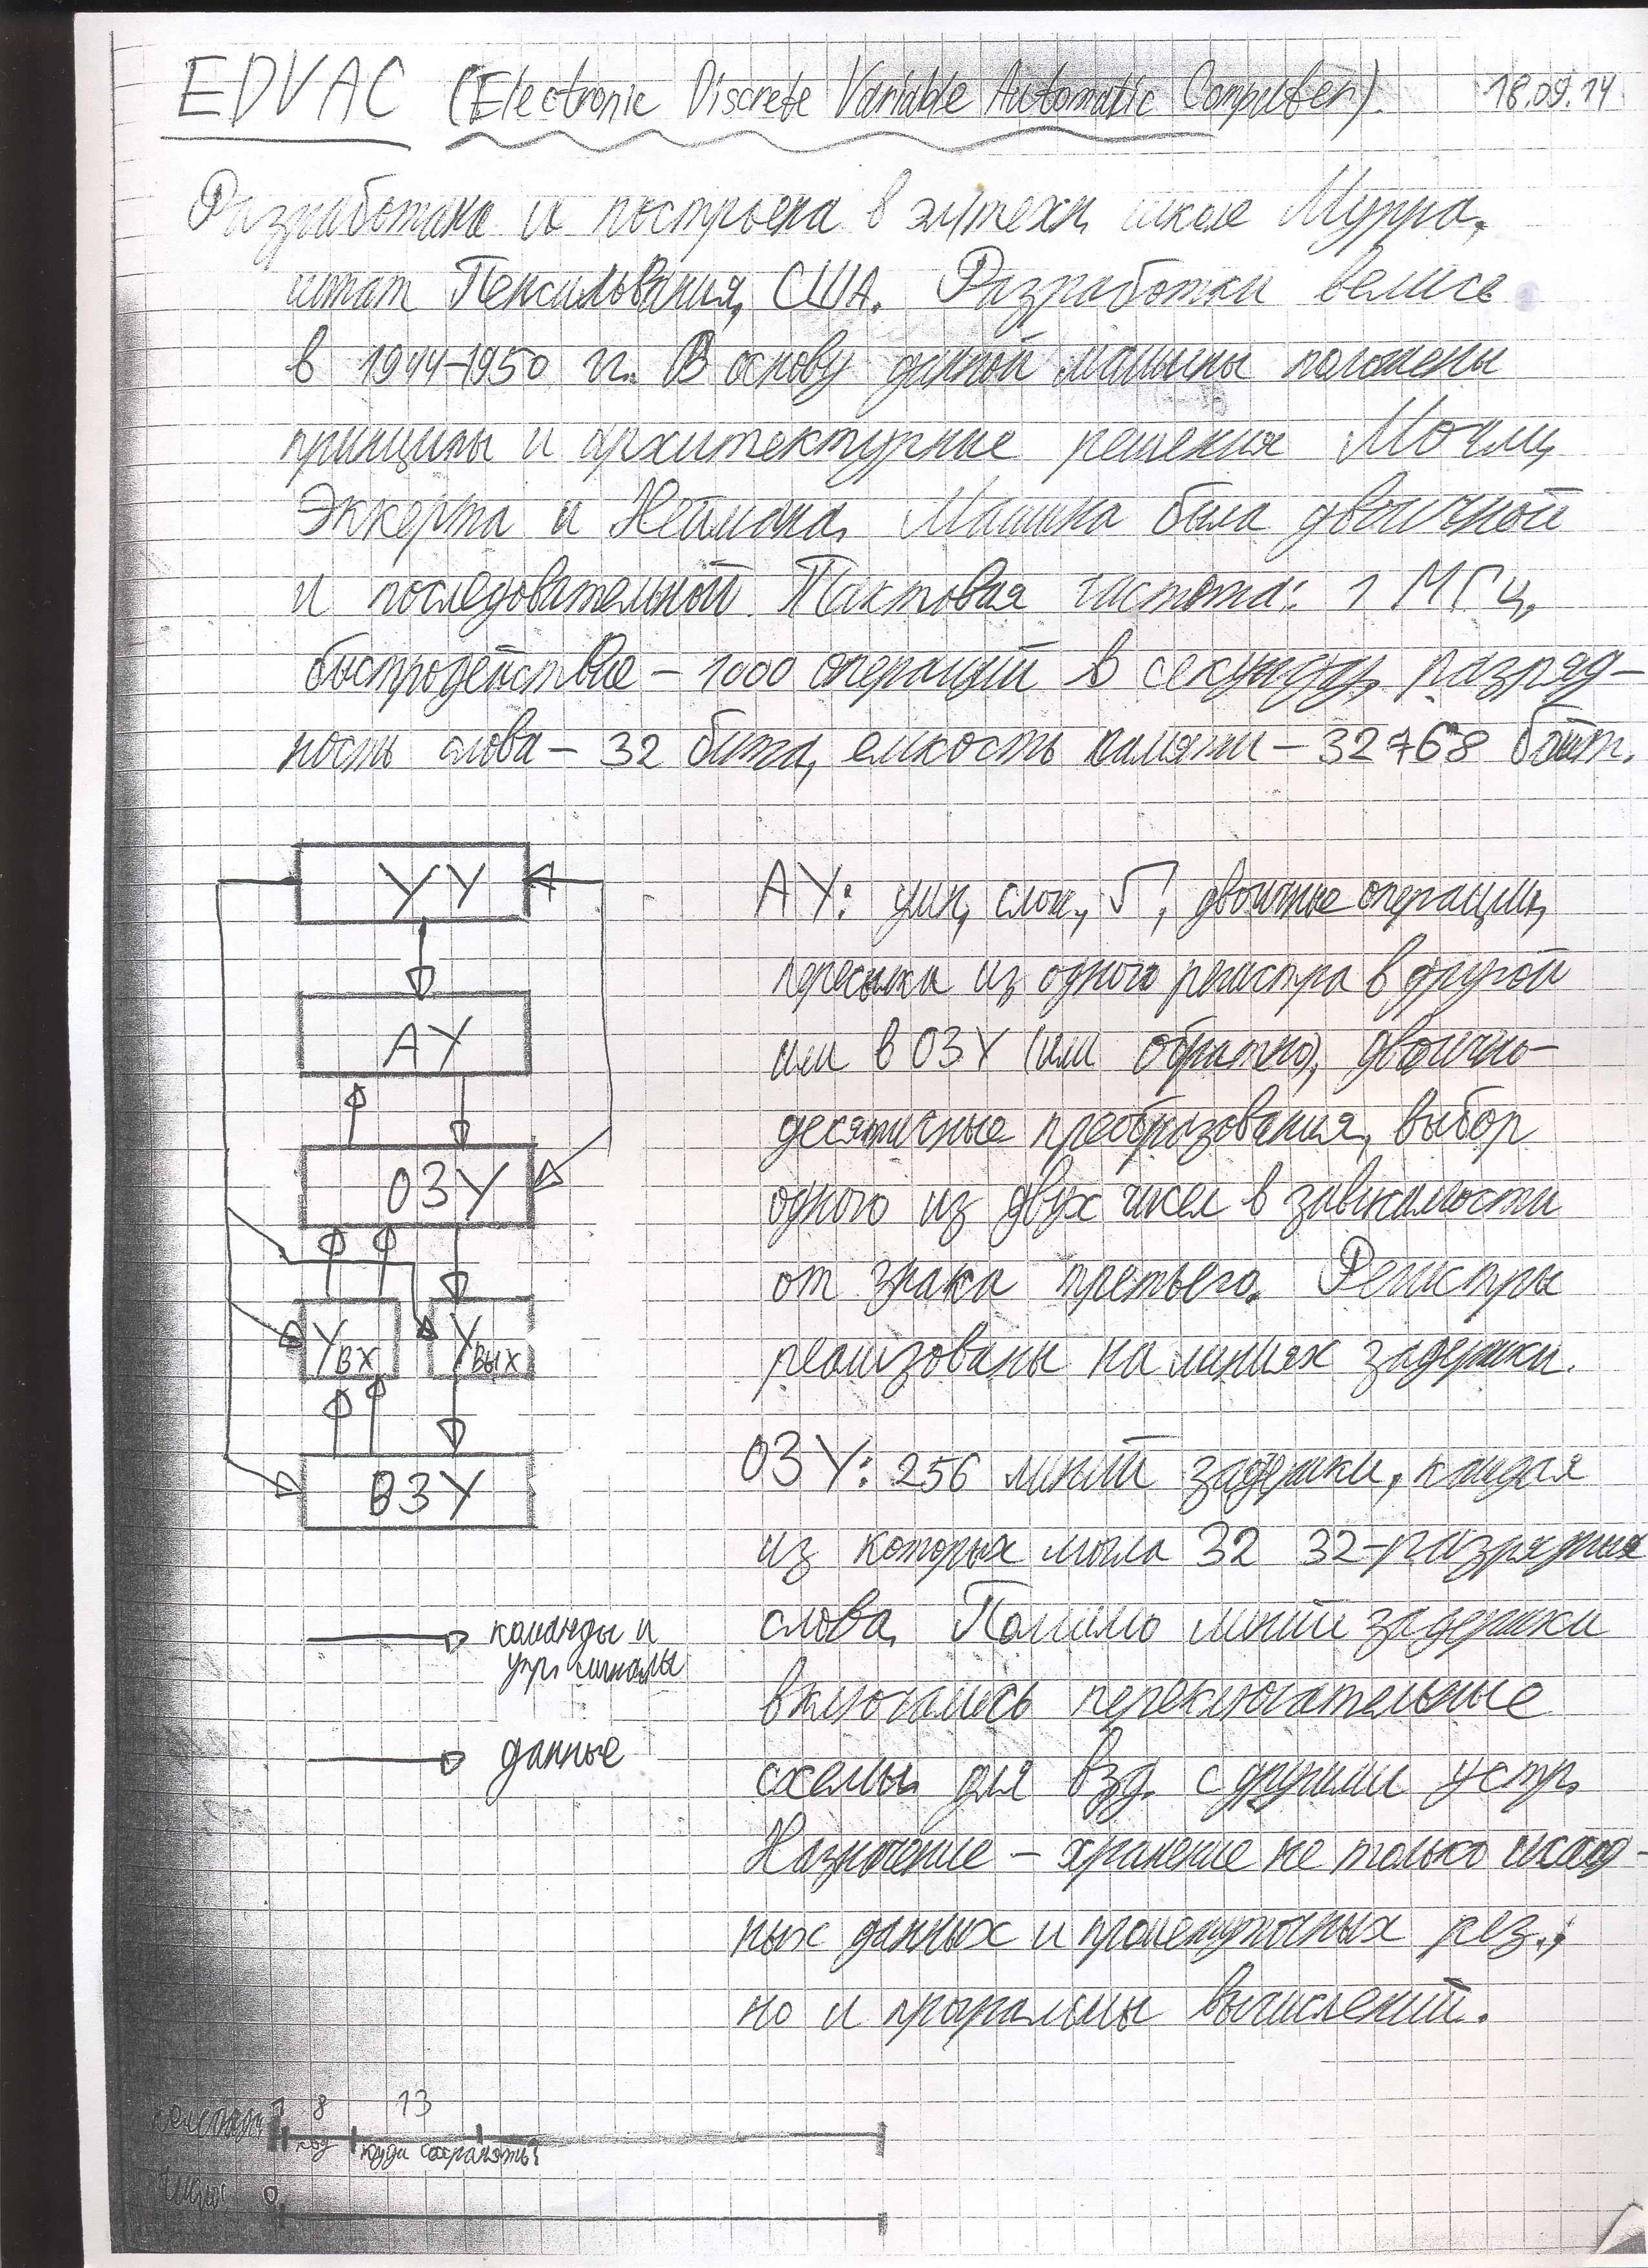 EDVAC (Electronic Discrete Variable Automatic Computer). 18.09.14
Разработана и построена в эл/техн. школе Мурра,
штат Пенсильвания, США. Разработки велись
в 1944-1950 гг. В основу данной машины положены
принципы и архитектурные решения Мочли,
Эккерта и Неймана. Машина была двоичной
и последовательной. Тактовая частота: 1 МГц,
быстродействие – 1000 операций в секунду, разряд-
ность слова – 32 бита, емкость памяти – 32768 байт.
УУ
АУ
ОЗУ
Увх Увых
ВЗУ
команды и
упр. сигналы
данные
АУ: умн., слож., √, двоичные операции,
пересылка из одного регистра в другой
или в ОЗУ (или обратно), двоично-
десятичные преобразования, выбор
одного из двух чисел в зависимости
от знака третьего. Регистры
реализованы на линиях задержки.
ОЗУ: 256 линий задержки, каждая
из которых могла 32 32-разрядных
слова. Помимо линий задержки
включались переключательные
схемы для взд. с другими устр.
Назначение – хранение не только исход-
ных данных и промежуточных рез.,
но и программы вычислений.
1 8 13
команды: код куда сохранять?
Числа: 0